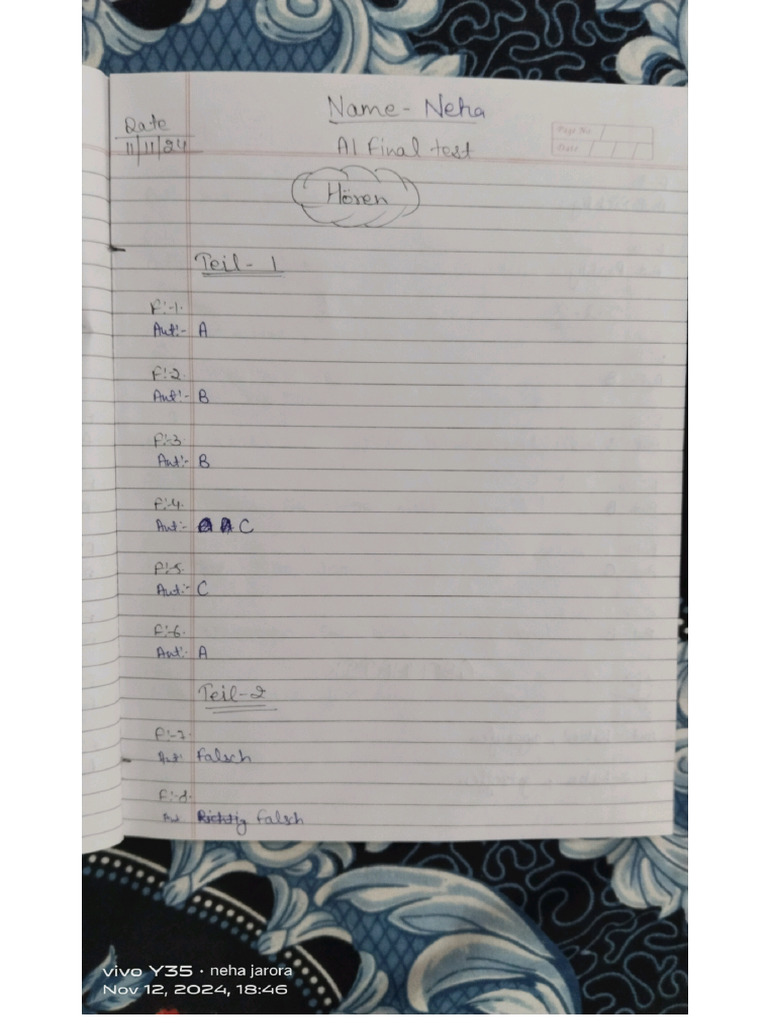 Name - Neha
Date
11/11/24
Page No.
Date
A1 Final test
Hören
Teil - 1
F:-1.
Ant:- A
F:-2.
Ant:- B
F:-3
Ant:- B
F:-4.
Ant:- C
F:-5.
Ant:- C
F:-6.
Ant:- A
Teil-2
F:-7.
Ant: Falsch
F:-8.
Ant. Richtig Falsch
vivo Y35 · neha jarora
Nov 12, 2024, 18:46